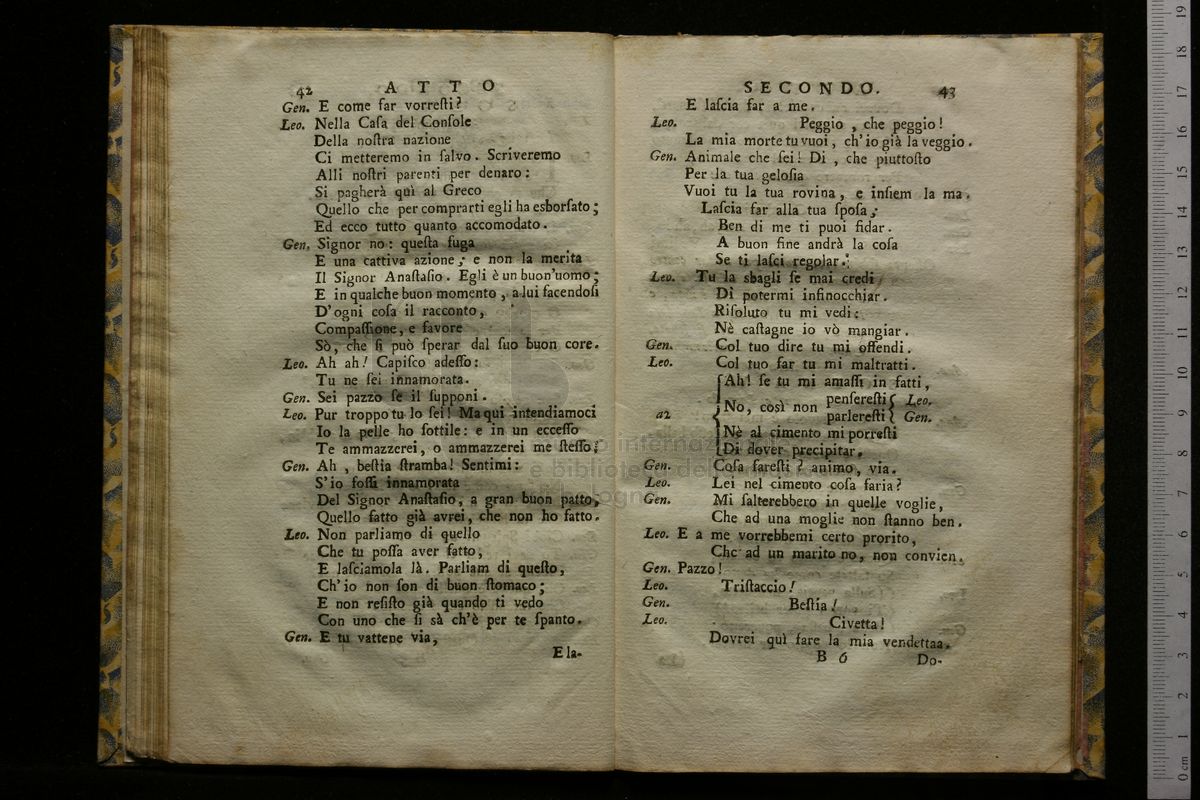 42 ATTO
Gen. E come far vorreſti?
Leo. Nella Caſa del Conſole
Della noſtra nazione
Ci metteremo in ſalvo. Scriveremo
Alli noſtri parenti per denaro:
Si pagherà quì al Greco
Quello che per comprarti egli ha esborſato;
Ed ecco tutto quanto accomodato.
Gen. Signor no: queſta fuga
E una cattiva azione; e non la merita
Il Signor Anaſtaſio. Egli è un buon'uomo;
E in qualche buon momento, a lui facendoſi
D'ogni coſa il racconto,
Compaſſione, e favore
Sò, che ſi può ſperar dal ſuo buon core.
Leo. Ah ah! Capiſco adeſſo:
Tu ne ſei innamorata.
Gen. Sei pazzo ſe il ſupponi.
Leo. Pur troppo tu lo ſei! Ma qui intendiamoci
Io la pelle ho ſottile: e in un ecceſſo
Te ammazzerei, o ammazzerei me ſteſſo;
Gen. Ah, beſtia ſtramba! Sentimi:
S'io foſſi innamorata
Del Signor Anaſtaſio, a gran buon patto,
Quello fatto già avrei, che non ho fatto.
Leo. Non parliamo di quello
Che tu poſſa aver fatto,
E laſciamola là. Parliam di queſto,
Ch'io non ſon di buon ſtomaco;
E non reſiſto già quando ti vedo
Con uno che ſi sà ch'è per te ſpanto.
Gen. E tu vattene via,
E la-
SECONDO. 43
E laſcia far a me.
Leo. Peggio, che peggio!
La mia morte tu vuoi, ch'io già la veggio.
Gen. Animale che ſei! Di, che piuttoſto
Per la tua geloſia
Vuoi tu la tua rovina, e inſiem la ma.
Laſcia far alla tua ſpoſa;
Ben di me ti puoi fidar.
A buon fine andrà la coſa
Se ti laſci regolar.
Leo. Tu la sbagli ſe mai credi
Di potermi infinocchiar.
Riſoluto tu mi vedi:
Nè caſtagne io vò mangiar.
Gen. Col tuo dire tu mi offendi.
Leo. Col tuo far tu mi maltratti.
Ah! ſe tu mi amaſſi in fatti,
a2 No, così non penſereſti Leo.
parlereſti Gen.
Nè al cimento mi porreſti
Di dover precipitar.
Gen. Coſa fareſti? animo, via.
Leo. Lei nel cimento coſa faria?
Gen. Mi ſalterebbero in quelle voglie,
Che ad una moglie non ſtanno ben.
Leo. E a me vorrebbemi certo prorito,
Che ad un marito no, non convien.
Gen. Pazzo!
Leo. Triſtaccio!
Gen. Beſtia!
Leo. Civetta!
Dovrei quì fare la mia vendettaa.
B 6 Do-
museo internaz
e bibliote della mus
bologn
0 cm 1 2 3 4 5 6 7 8 9 10 11 12 13 14 15 16 17 18 19